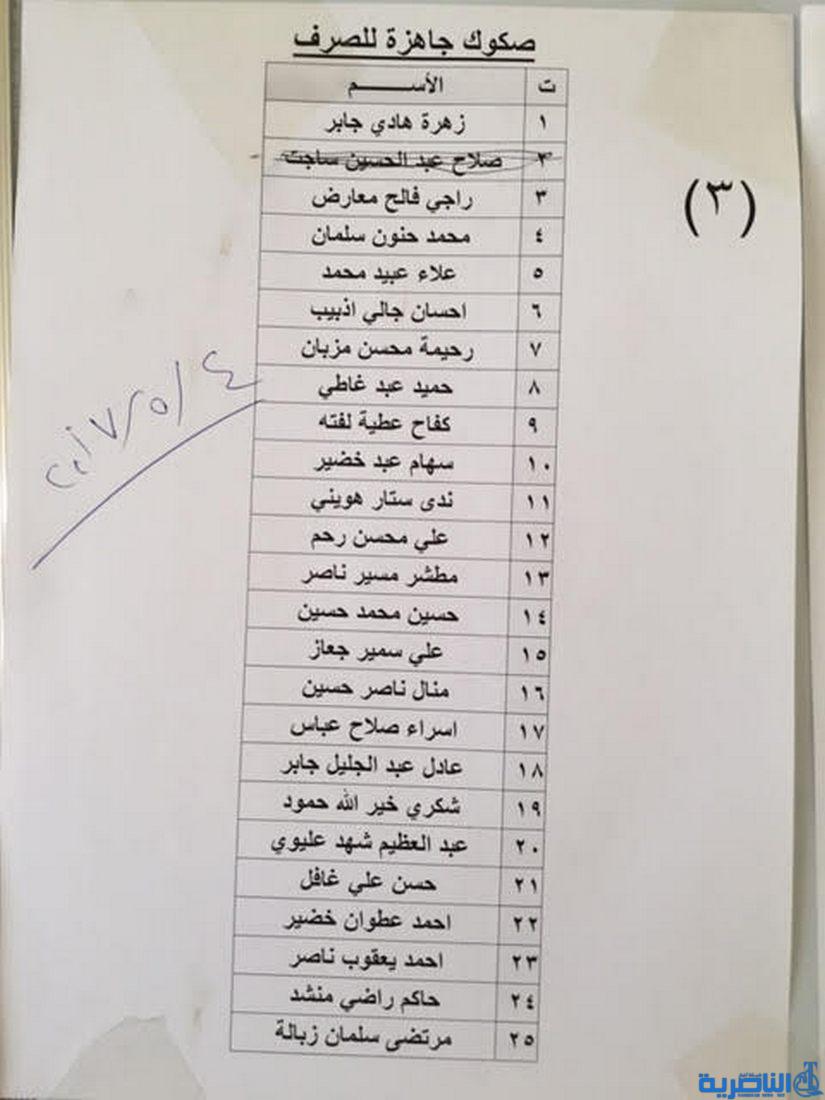 صكوك جاهزة للصرف
ت الأســـــم
١ زهرة هادي جابر
٢ صلاح عبد الحسين ساجت
٣ راجي فالح معارض
(٣)
٤ محمد حنون سلمان
٥ علاء عبيد محمد
٦ احسان جالي اذبيب
٧ رحيمة محسن مزبان
٨ حميد عبد غاطي
٢٠١٧/٥/٤
٩ كفاح عطية لفته
١٠ سهام عبد خضير
١١ ندى ستار هويني
١٢ علي محسن رحم
١٣ مطشر مسير ناصر
١٤ حسين محمد حسين
١٥ علي سمير جعاز
١٦ منال ناصر حسين
١٧ اسراء صلاح عباس
١٨ عادل عبد الجليل جابر
١٩ شكري خير الله حمود
٢٠ عبد العظيم شهد عليوي
٢١ حسن علي غافل
٢٢ احمد عطوان خضير
٢٣ احمد يعقوب ناصر
٢٤ حاكم راضي منشد
٢٥ مرتضى سلمان زبالة
الناصرية